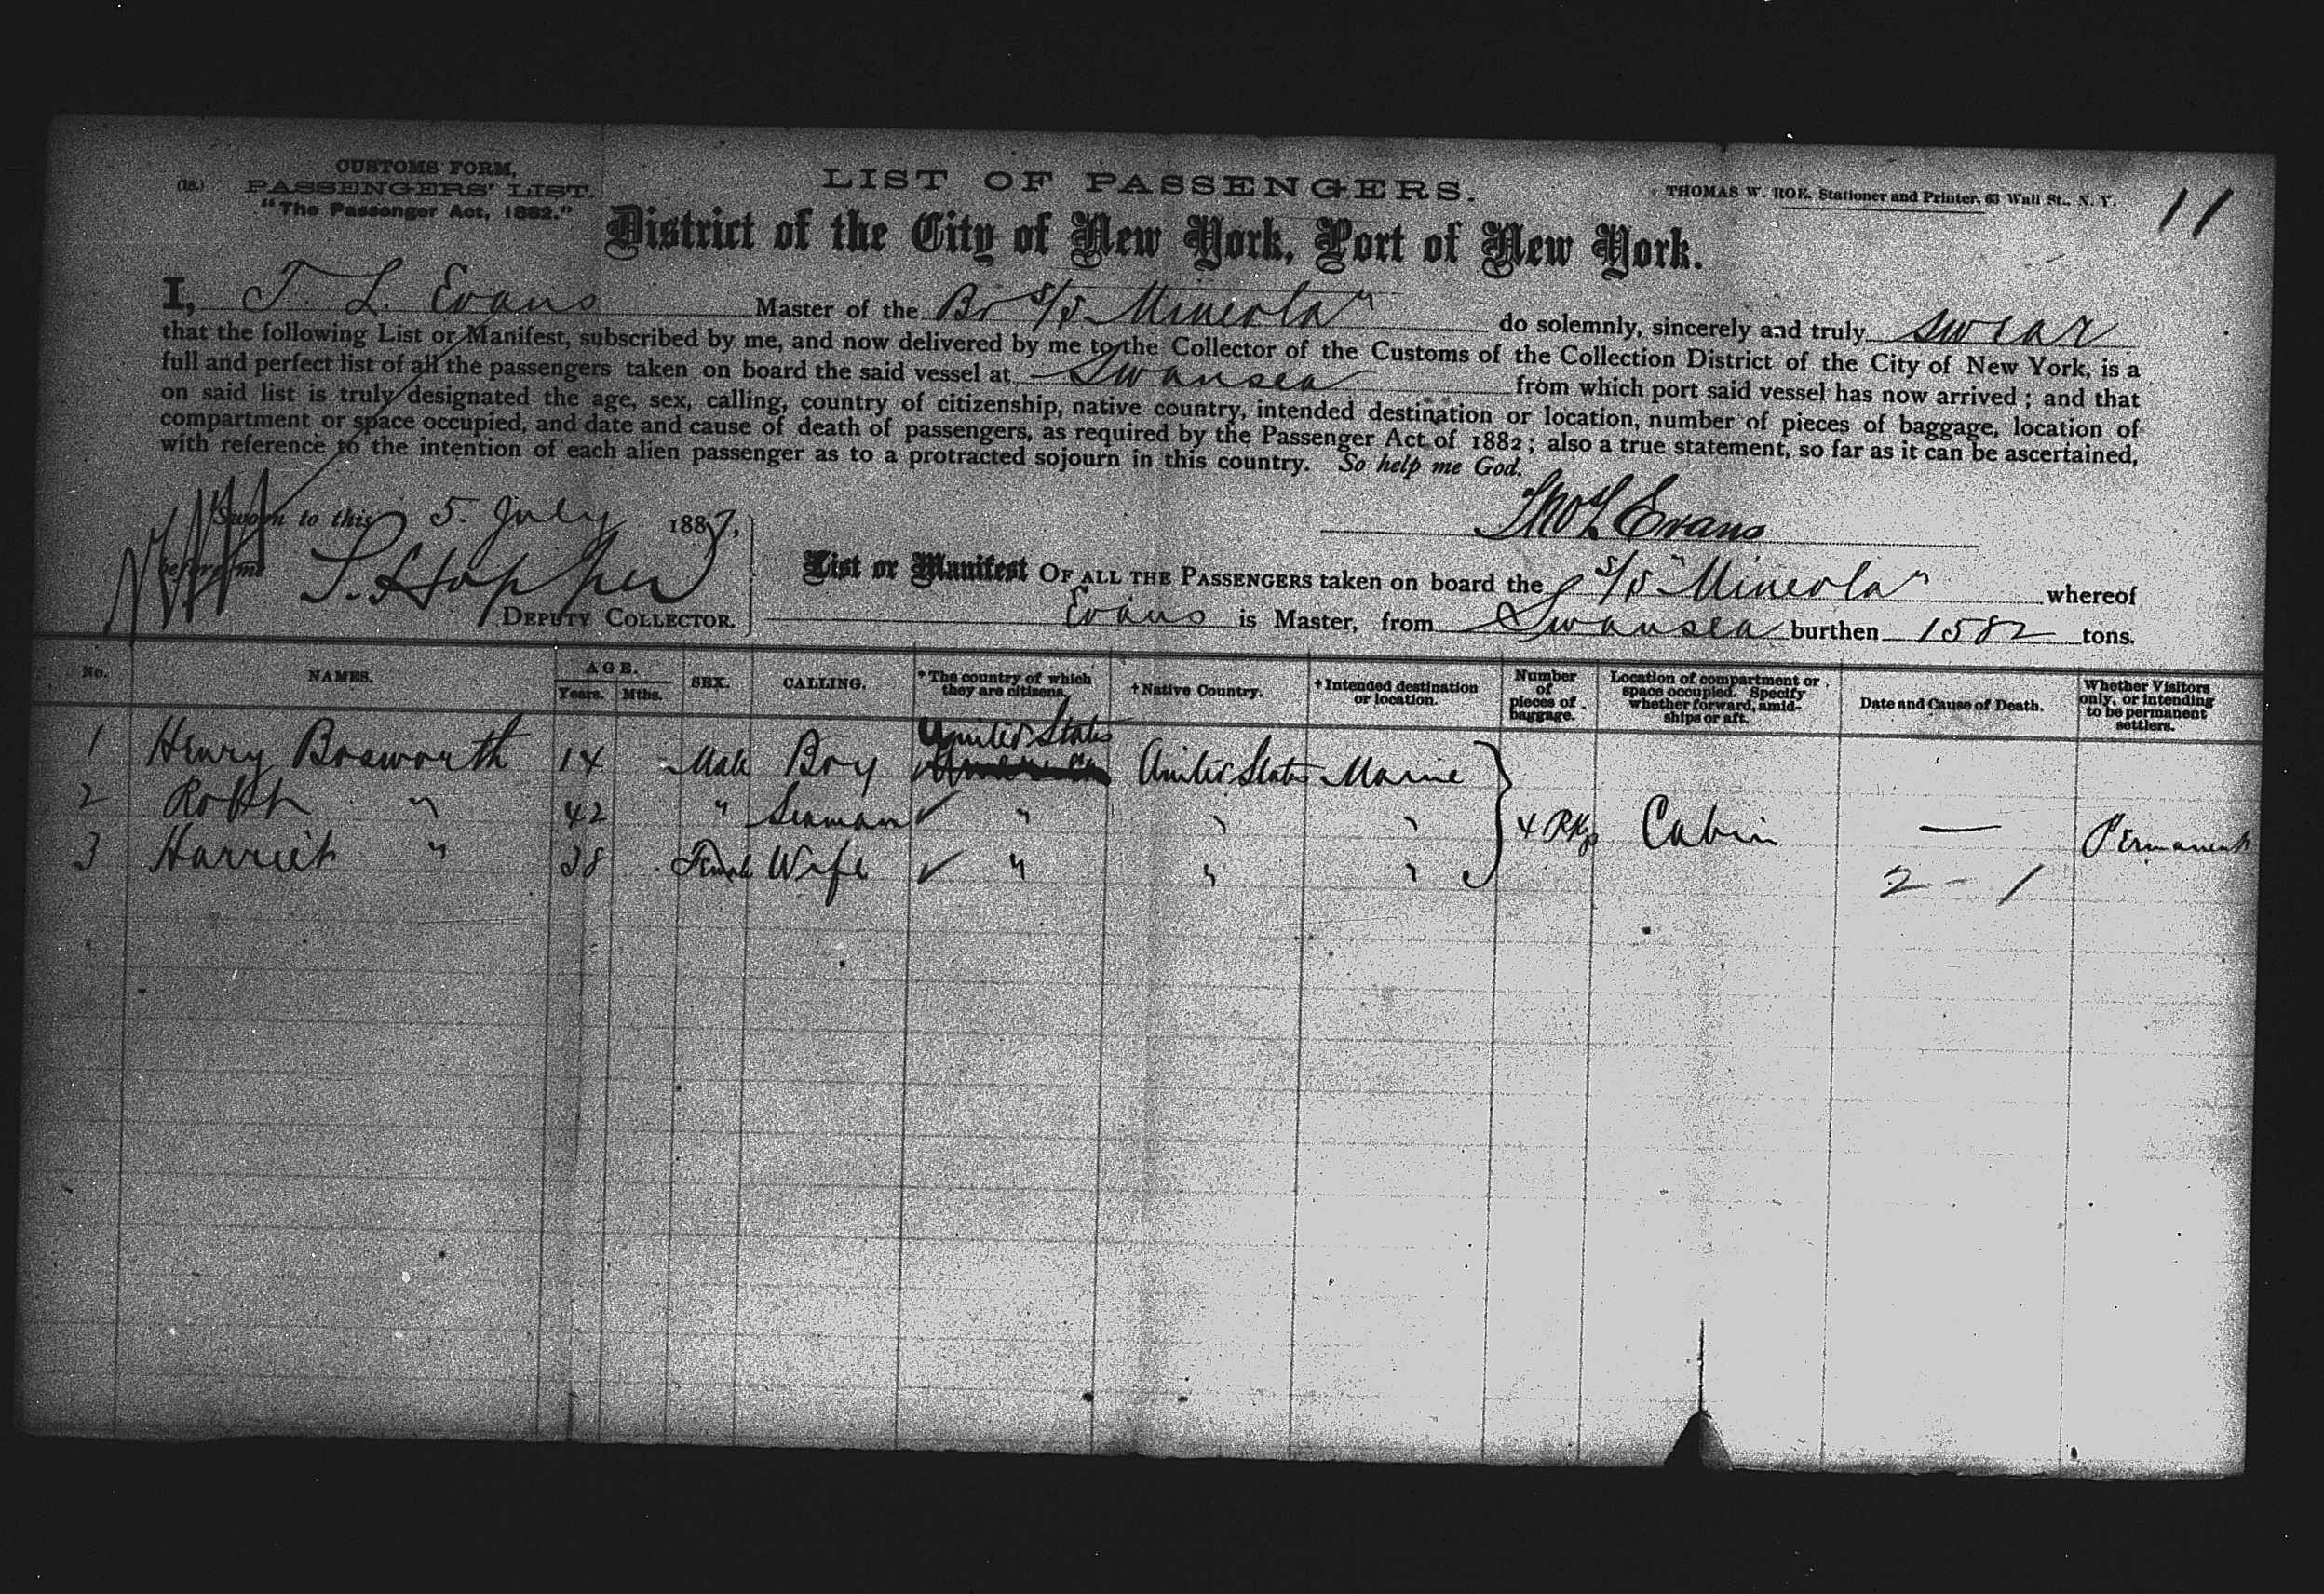 CUSTOMS FORM,
(18.) PASSENGERS' LIST.
"The Passenger Act, 1882."
LIST OF PASSENGERS.
THOMAS W. ROE, Stationer and Printer, 63 Wall St., N. Y.
11
District of the City of New York, Port of New York.
I, T. L. Evans Master of the Br S/S "Mineola" do solemnly, sincerely and truly swear
that the following List or Manifest, subscribed by me, and now delivered by me to the Collector of the Customs of the Collection District of the City of New York, is a
full and perfect list of all the passengers taken on board the said vessel at Swansea from which port said vessel has now arrived; and that
on said list is truly designated the age, sex, calling, country of citizenship, native country, intended destination or location, number of pieces of baggage, location of
compartment or space occupied, and date and cause of death of passengers, as required by the Passenger Act of 1882; also a true statement, so far as it can be ascertained,
with reference to the intention of each alien passenger as to a protracted sojourn in this country. So help me God.
Sworn to this 5. July 1887,
Thos L Evans
before me
S. Hopper
DEPUTY COLLECTOR.
List or Manifest OF ALL THE PASSENGERS taken on board the S/S "Mineola" whereof
Evans is Master, from Swansea burthen 1582 tons.
No. NAMES. AGE. Years. Mths. SEX. CALLING. *The country of which they are citizens. †Native Country. †Intended destination or location. Number of pieces of baggage. Location of compartment or space occupied. Specify whether forward, amidships or aft. Date and Cause of Death. Whether Visitors only, or intending to be permanent settlers.
United States
1 Henry Bosworth 14 Male Boy United States Maine
2 Robt " 42 " Seaman ✓ " " " 4 Pkgs Cabin — Permanent
3 Harriet " 38 Female Wife ✓ " " "
2 - 1